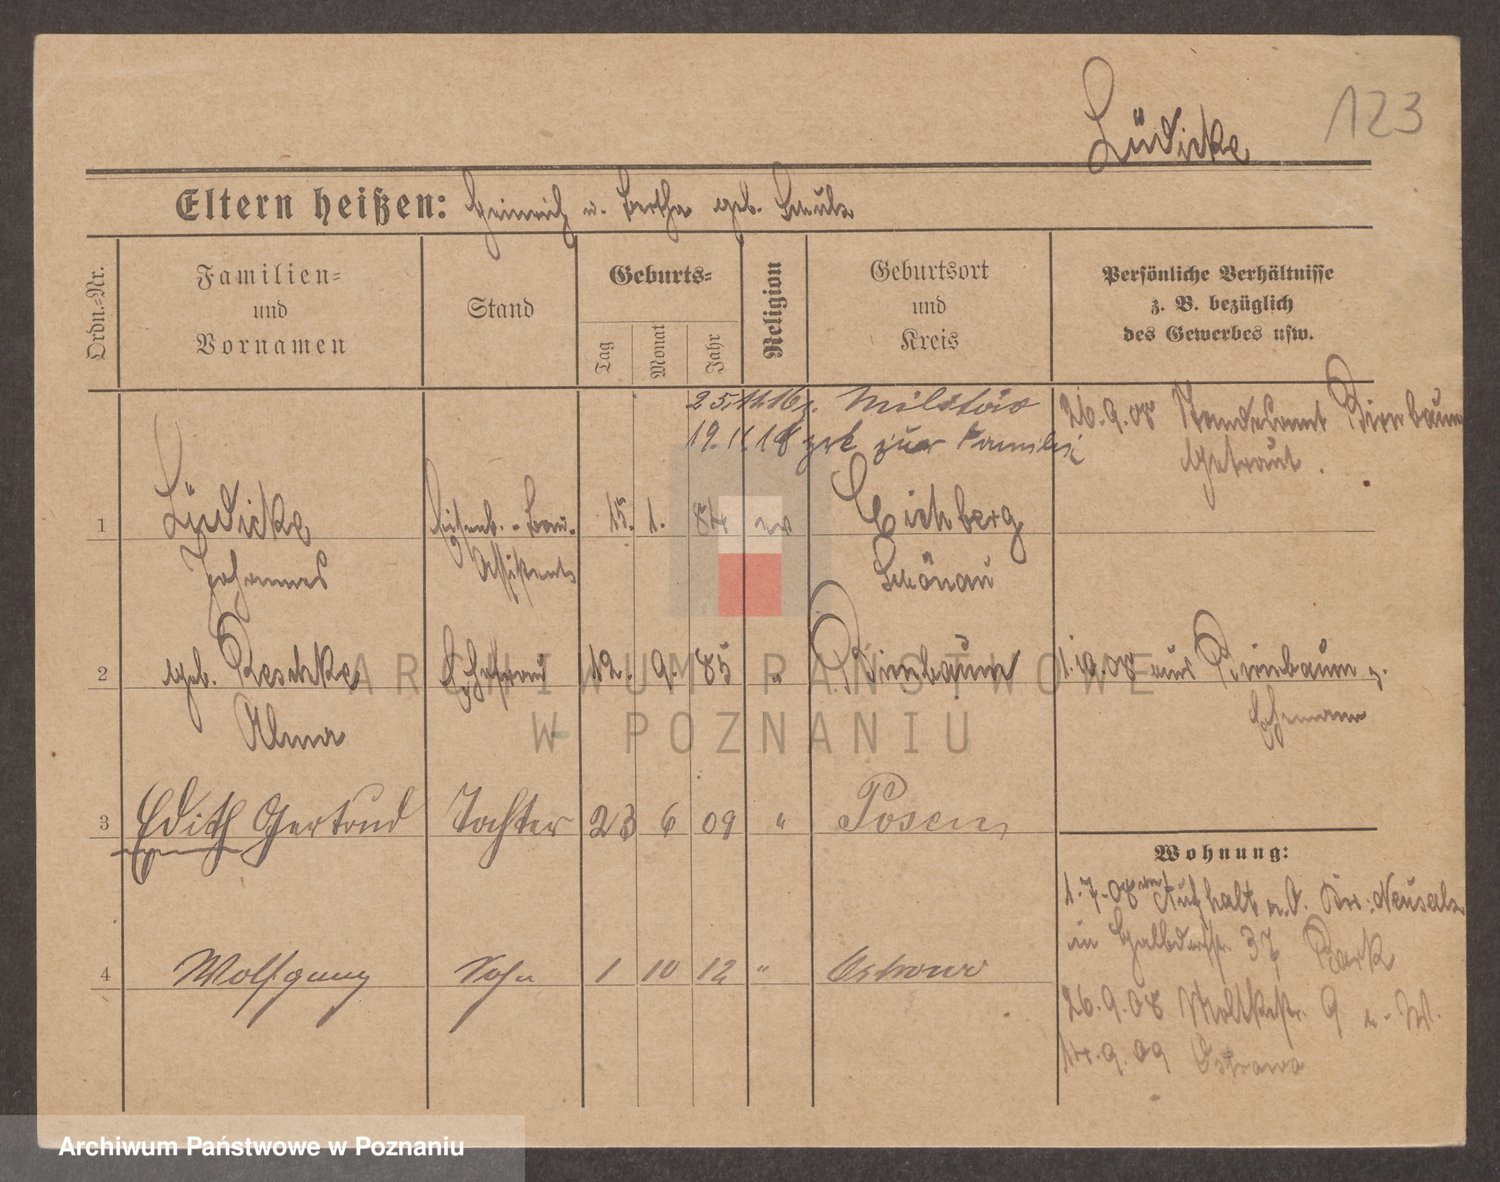 Lüdicke
123
Eltern heißen: Heinrich u. Bertha geb. Schulz
Ordn.-Nr.
Familien-
und
Vornamen
Stand
Geburts-
Tag
Monat
Jahr
Religion
Geburtsort
und
Kreis
Persönliche Verhältnisse
z. B. bezüglich
des Gewerbes usw.
z. Militär
19.11.18 zrk zur Familie
26.9.08 Standesamt Birnbaum
Getraut.
1 Lüdicke Eisenb.-Bau- 15. 1. 84 ev Eichberg
Johannes Assistent Schönau
2 geb. Reschke Ehefrau 12. 9. 85 " Birnbaum 1.10.08 aus Birnbaum z.
Alma Ehemann
3 Edith Gertrud Tochter 23 6 09 " Posen
Wohnung:
1.7.08 Neusalz
in 37 Park
4 Wolfgang Sohn 1 10 12 " Ostrowo
26.9.08 Moltkestr. 9 W.
14.9.09 Ostrowo
ARCHIWUM PAŃSTWOWE
W POZNANIU
Archiwum Państwowe w Poznaniu